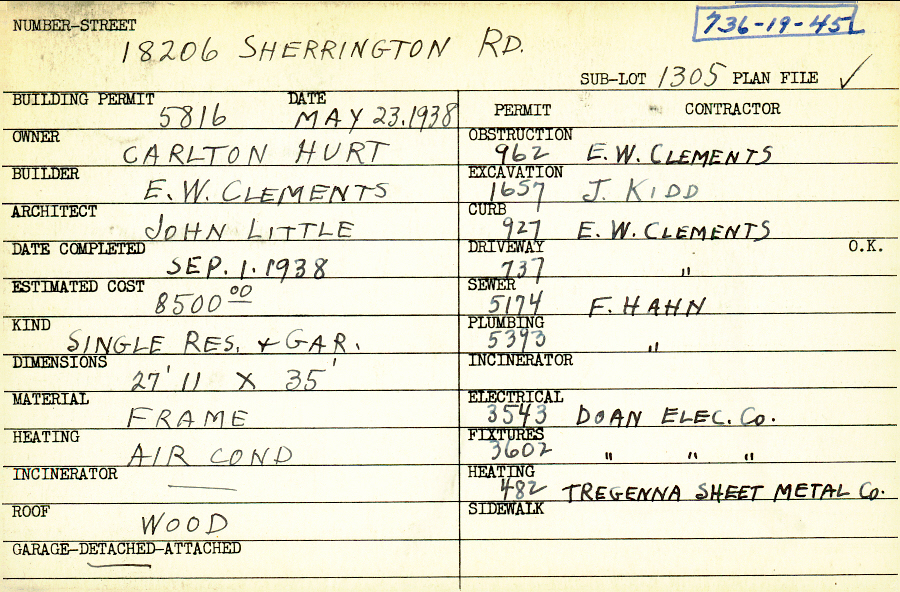 NUMBER-STREET 736-19-45
18206 SHERRINGTON RD.
SUB-LOT 1305 PLAN FILE ✓
BUILDING PERMIT 5816 DATE MAY 23.1938
OWNER CARLTON HURT
BUILDER E.W. CLEMENTS
ARCHITECT JOHN LITTLE
DATE COMPLETED SEP. 1. 1938
ESTIMATED COST 8500 00
KIND SINGLE RES. + GAR.
DIMENSIONS 27' 11 X 35'
MATERIAL FRAME
HEATING AIR COND
INCINERATOR —
ROOF WOOD
GARAGE-DETACHED-ATTACHED
PERMIT CONTRACTOR
OBSTRUCTION 962 E.W. CLEMENTS
EXCAVATION 1657 J. KIDD
CURB 927 E.W. CLEMENTS
DRIVEWAY 737 " O.K.
SEWER 5174 F. HAHN
PLUMBING 5393 "
INCINERATOR
ELECTRICAL 3543 DOAN ELEC. Co.
FIXTURES 3602 " " "
HEATING 482 TREGENNA SHEET METAL Co.
SIDEWALK